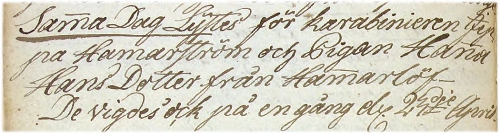 Samma Dag Lystes för karabinieren
pa Hamarström och Pigan Hanna
Hans Dotter från Hamarlöf
De vigdes ock på en gång d. April